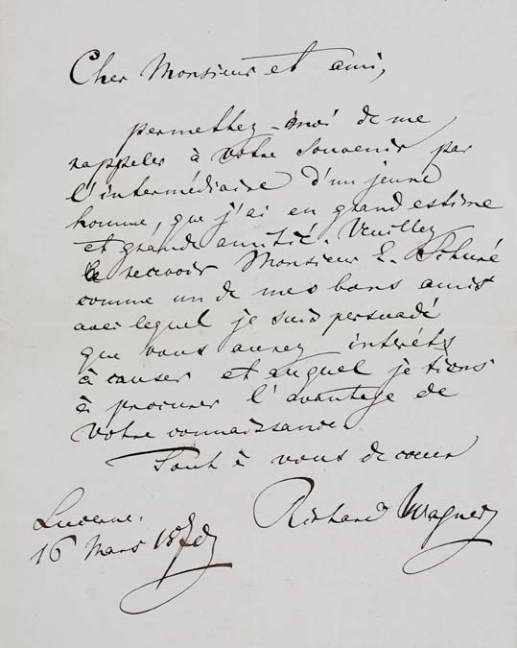 Cher Monsieur et ami,
permettez-moi de me
rappeler à votre souvenir par
l'intermédiaire d'un jeune
homme, que j'ai en grand estime
et grande amitié. Veuillez
le recevoir Monsieur E. Schuré
comme un de mes bons amis
avec lequel je suis persuadé
que vous aurez intérêts
à causer et auquel je tiens
à procurer l'avantage de
votre connaissance.
Tout à vous de coeur
Richard Wagner
Lucerne.
16 Mars 1870